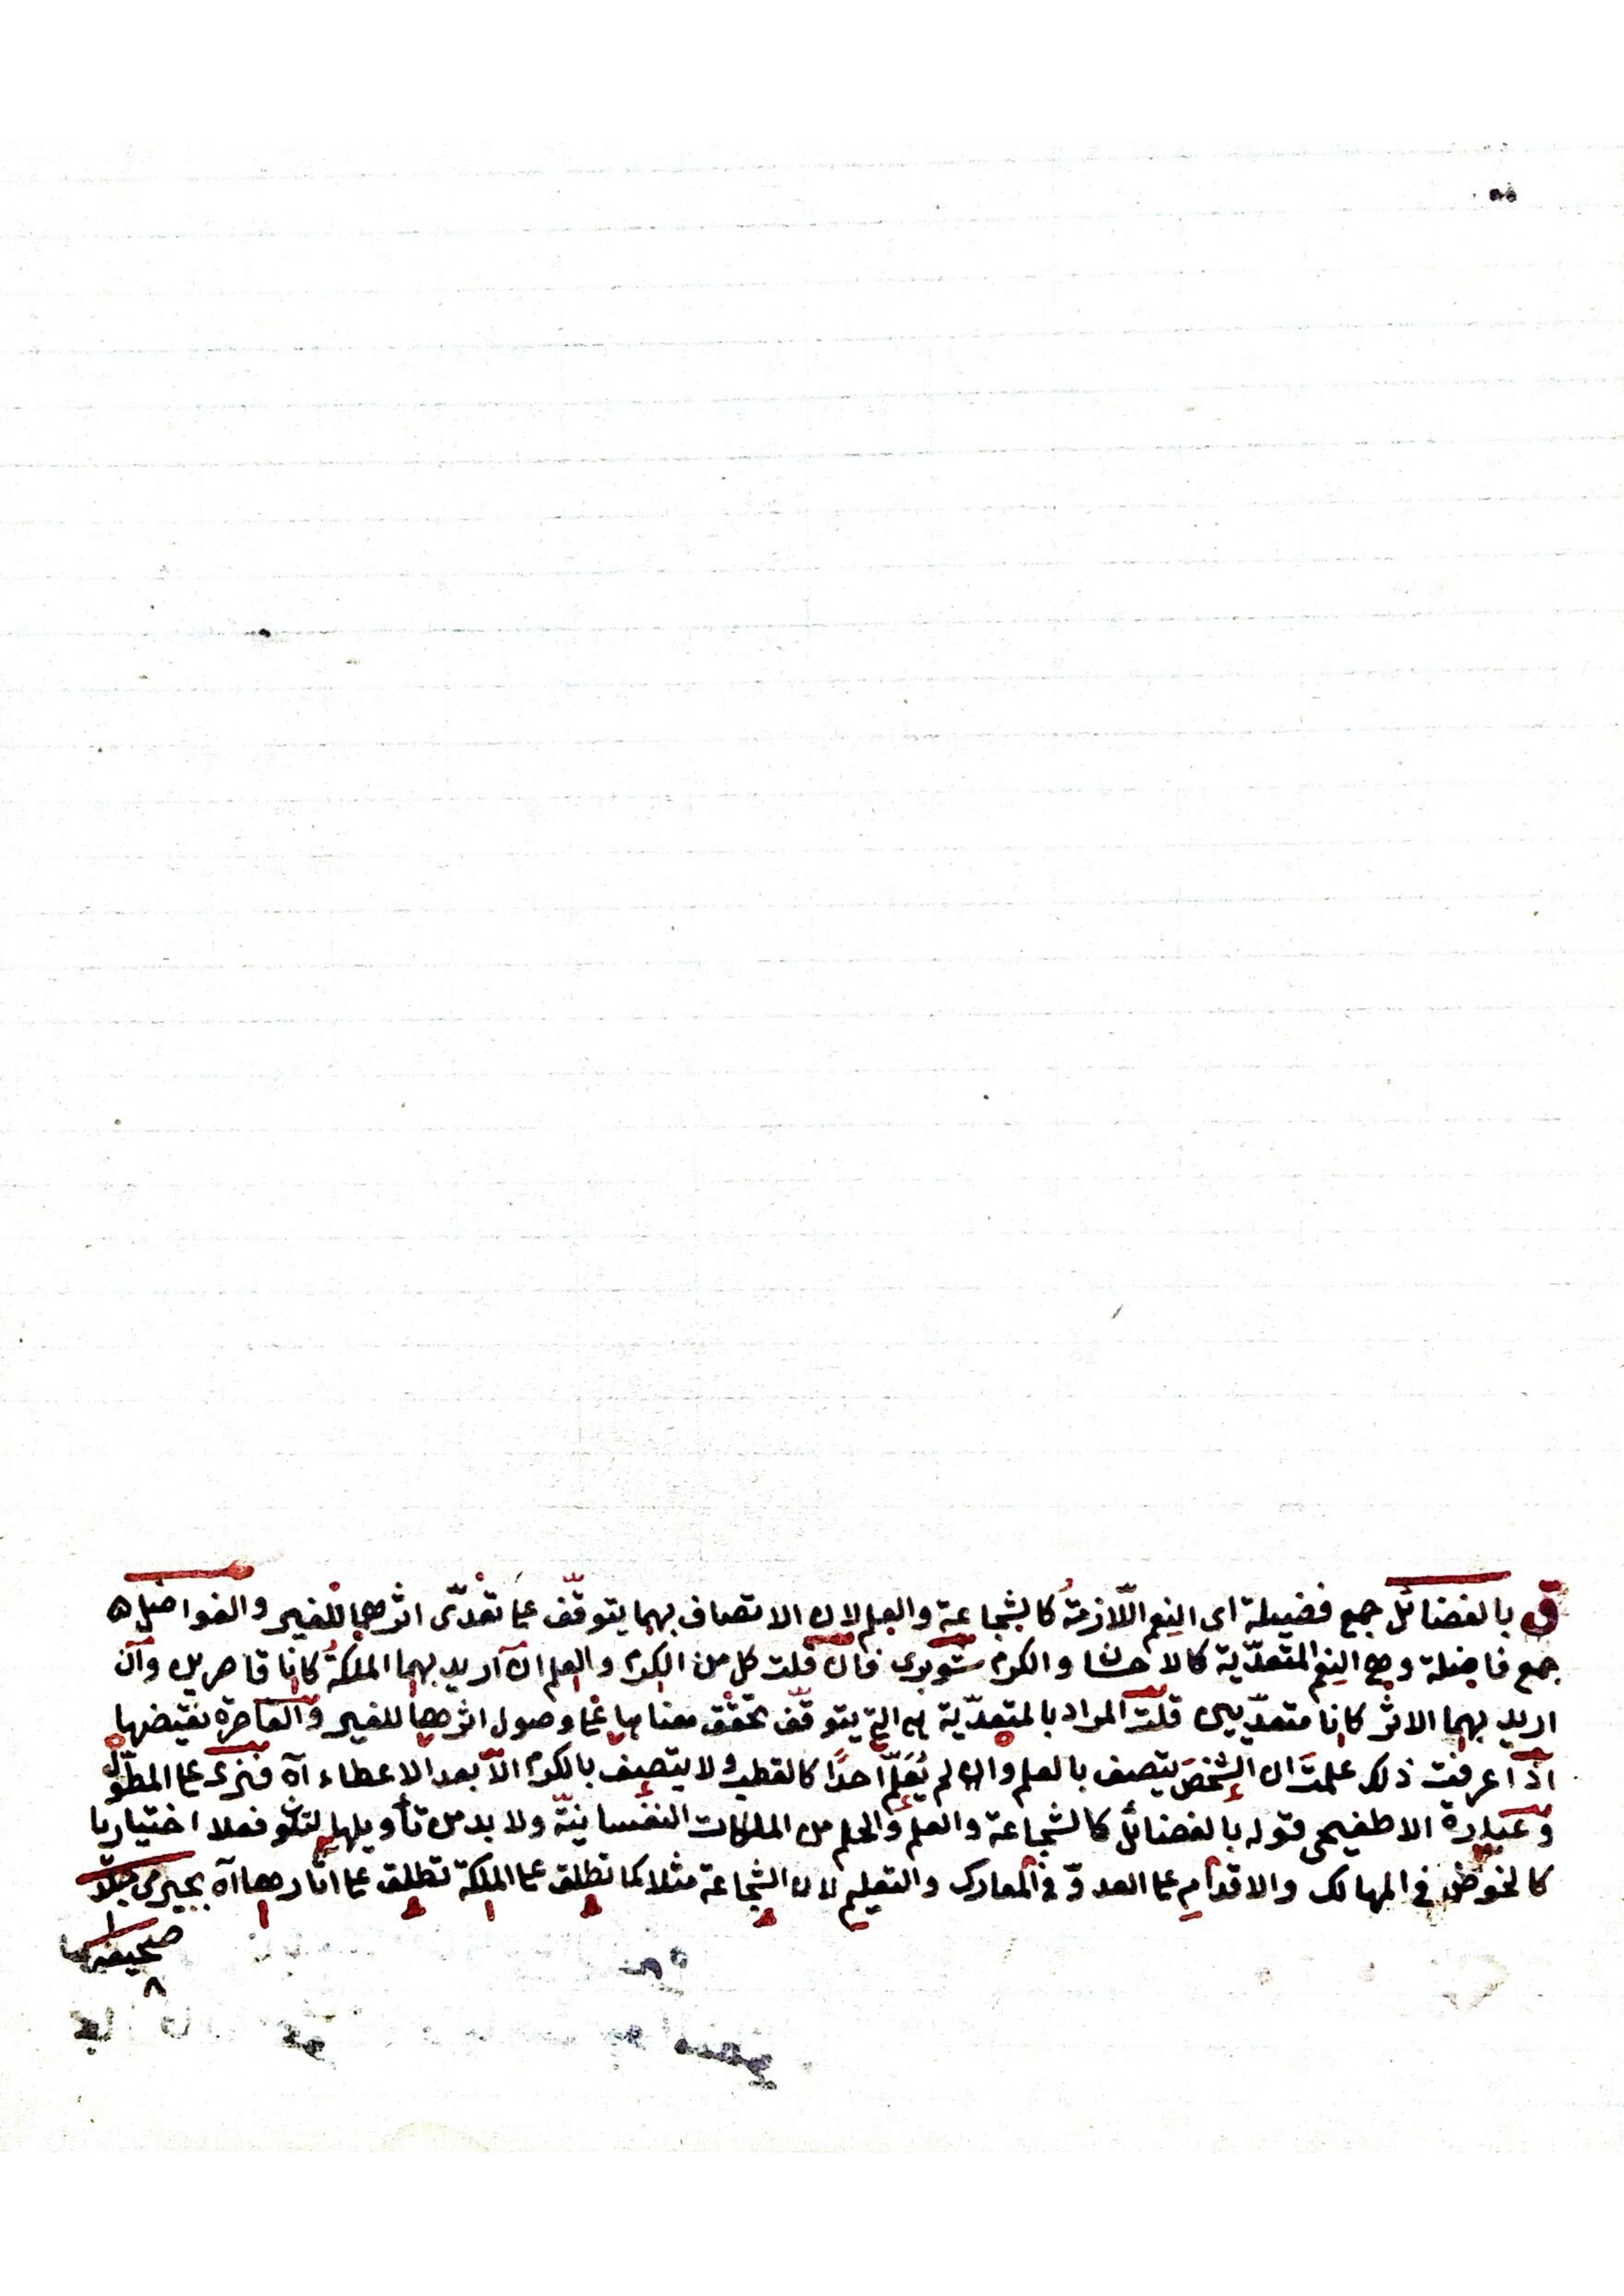 ق بالفضائل جمع فضيلة اى النعم اللّازمة كالشجاعة والعلم لان الاتصاف بهما يتوقّف على تعدّى اثرهما للغير والفواضل
جمع فاضلة وهى النعم المتعدّية كالاحسان والكرم شوبرى فان قلت كل من الكرم والعلم ان اريد بهما الملكة كانا قاصرين وان
اريد بهما الاثر كانا متعدّيين قلت المراد بالمتعدّية هى التى يتوقّف تحقّق معناها على وصول اثرهما للغير والقاصرة نقيضها
اذا عرفت ذلك علمت ان الشخص يتصف بالعلم وان لم يُعَلِّم احدًا كالقطب ولا يتصف بالكرم الّا بعد الاعطاء آه فنرى على المطوّل
وعبارة الاطفيحى قوله بالفضائل كالشجاعة والعلم والحلم من الملكات النفسانيّة ولا بد من تأويلها لتكون فعلا اختياريا
كالخوض فى المهالك والاقدام على العدوّ فى المعارك والتعليم لان الشجاعة مثلا كما تطلق على الملكة تطلق على اثارها آه بجيرمى جلد
١
صحيفه
٨